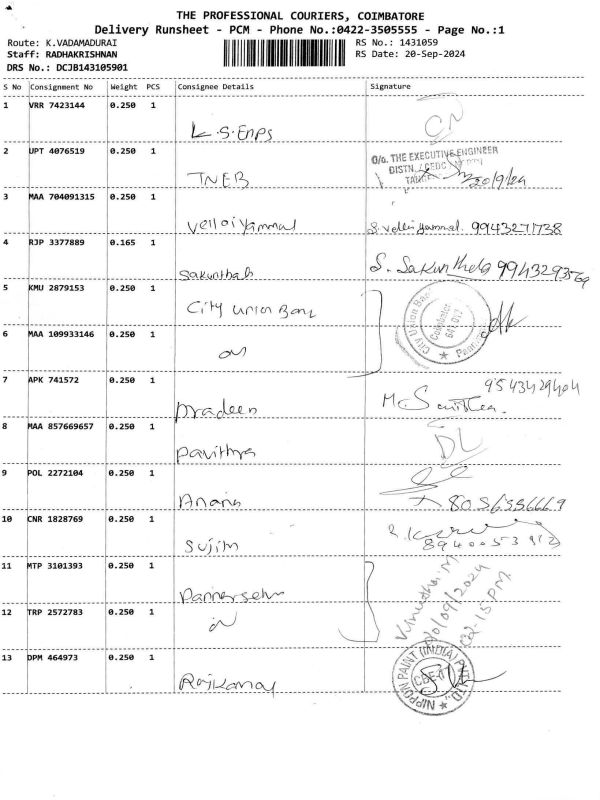 THE PROFESSIONAL COURIERS, COIMBATORE
Delivery Runsheet - PCM - Phone No.:0422-3505555 - Page No.:1
Route: K.VADAMADURAI
RS No.: 1431059
Staff: RADHAKRISHNAN
RS Date: 20-Sep-2024
DRS No.: DCJB143105901
S No Consignment No Weight PCS Consignee Details Signature
1 VRR 7423144 0.250 1
L.S.Enps
2 UPT 4076519 0.250 1
O/o. THE EXECUTIVE ENGINEER
DISTN.
TNEB
20/9/24
3 MAA 704091315 0.250 1
velloiyammal
9943271738
4 RJP 3377889 0.165 1
Sakunthala
S. Sakunthala
5 KMU 2879153 0.250 1
City union Bank
City Union Bank
Coimbatore
6 MAA 109933146 0.250 1
7 APK 741572 0.250 1
9543429404
Pradeep
8 MAA 857669657 0.250 1
DL
Pavithra
9 POL 2272104 0.250 1
8056556669
10 CNR 1828769 0.250 1
Sujith
11 MTP 3101393 0.250 1
Vinustha.M
20/09/2024
02.15 PM
12 TRP 2572783 0.250 1
13 DPM 464973 0.250 1
NIPPON PAINT (INDIA) PVT LTD.
Rajkamal